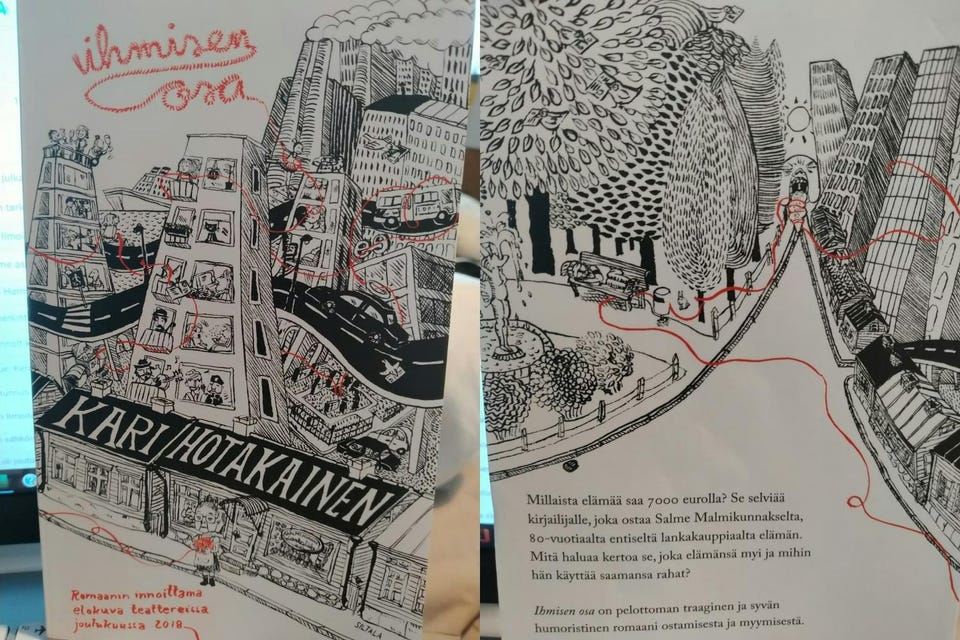 ihmisen
osa
KARI HOTAKAINEN
Romaanin innoittama
elokuva teattereissa
joulukuussa 2018
SILTALA
Millaista elämää saa 7000 eurolla? Se selviää
kirjailijalle, joka ostaa Salme Malmikunnakselta,
80-vuotiaalta entiseltä lankakauppiaalta elämän.
Mitä haluaa kertoa se, joka elämänsä myi ja mihin
hän käyttää saamansa rahat?
Ihmisen osa on pelottoman traaginen ja syvän
humoristinen romaani ostamisesta ja myymisestä.